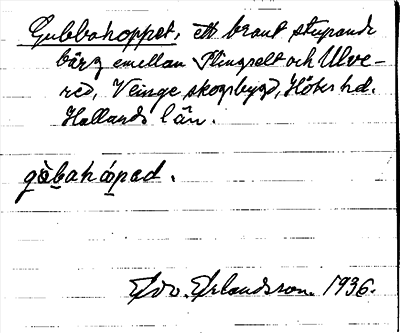 Gubbahoppet, ett brant stupande
bärg emellan Plingselt och Ulve-
red, Veinge skogsbygd, Höks hd.
Hallands län.
gòbahópad.
Edv. Erlandsson. 1936.